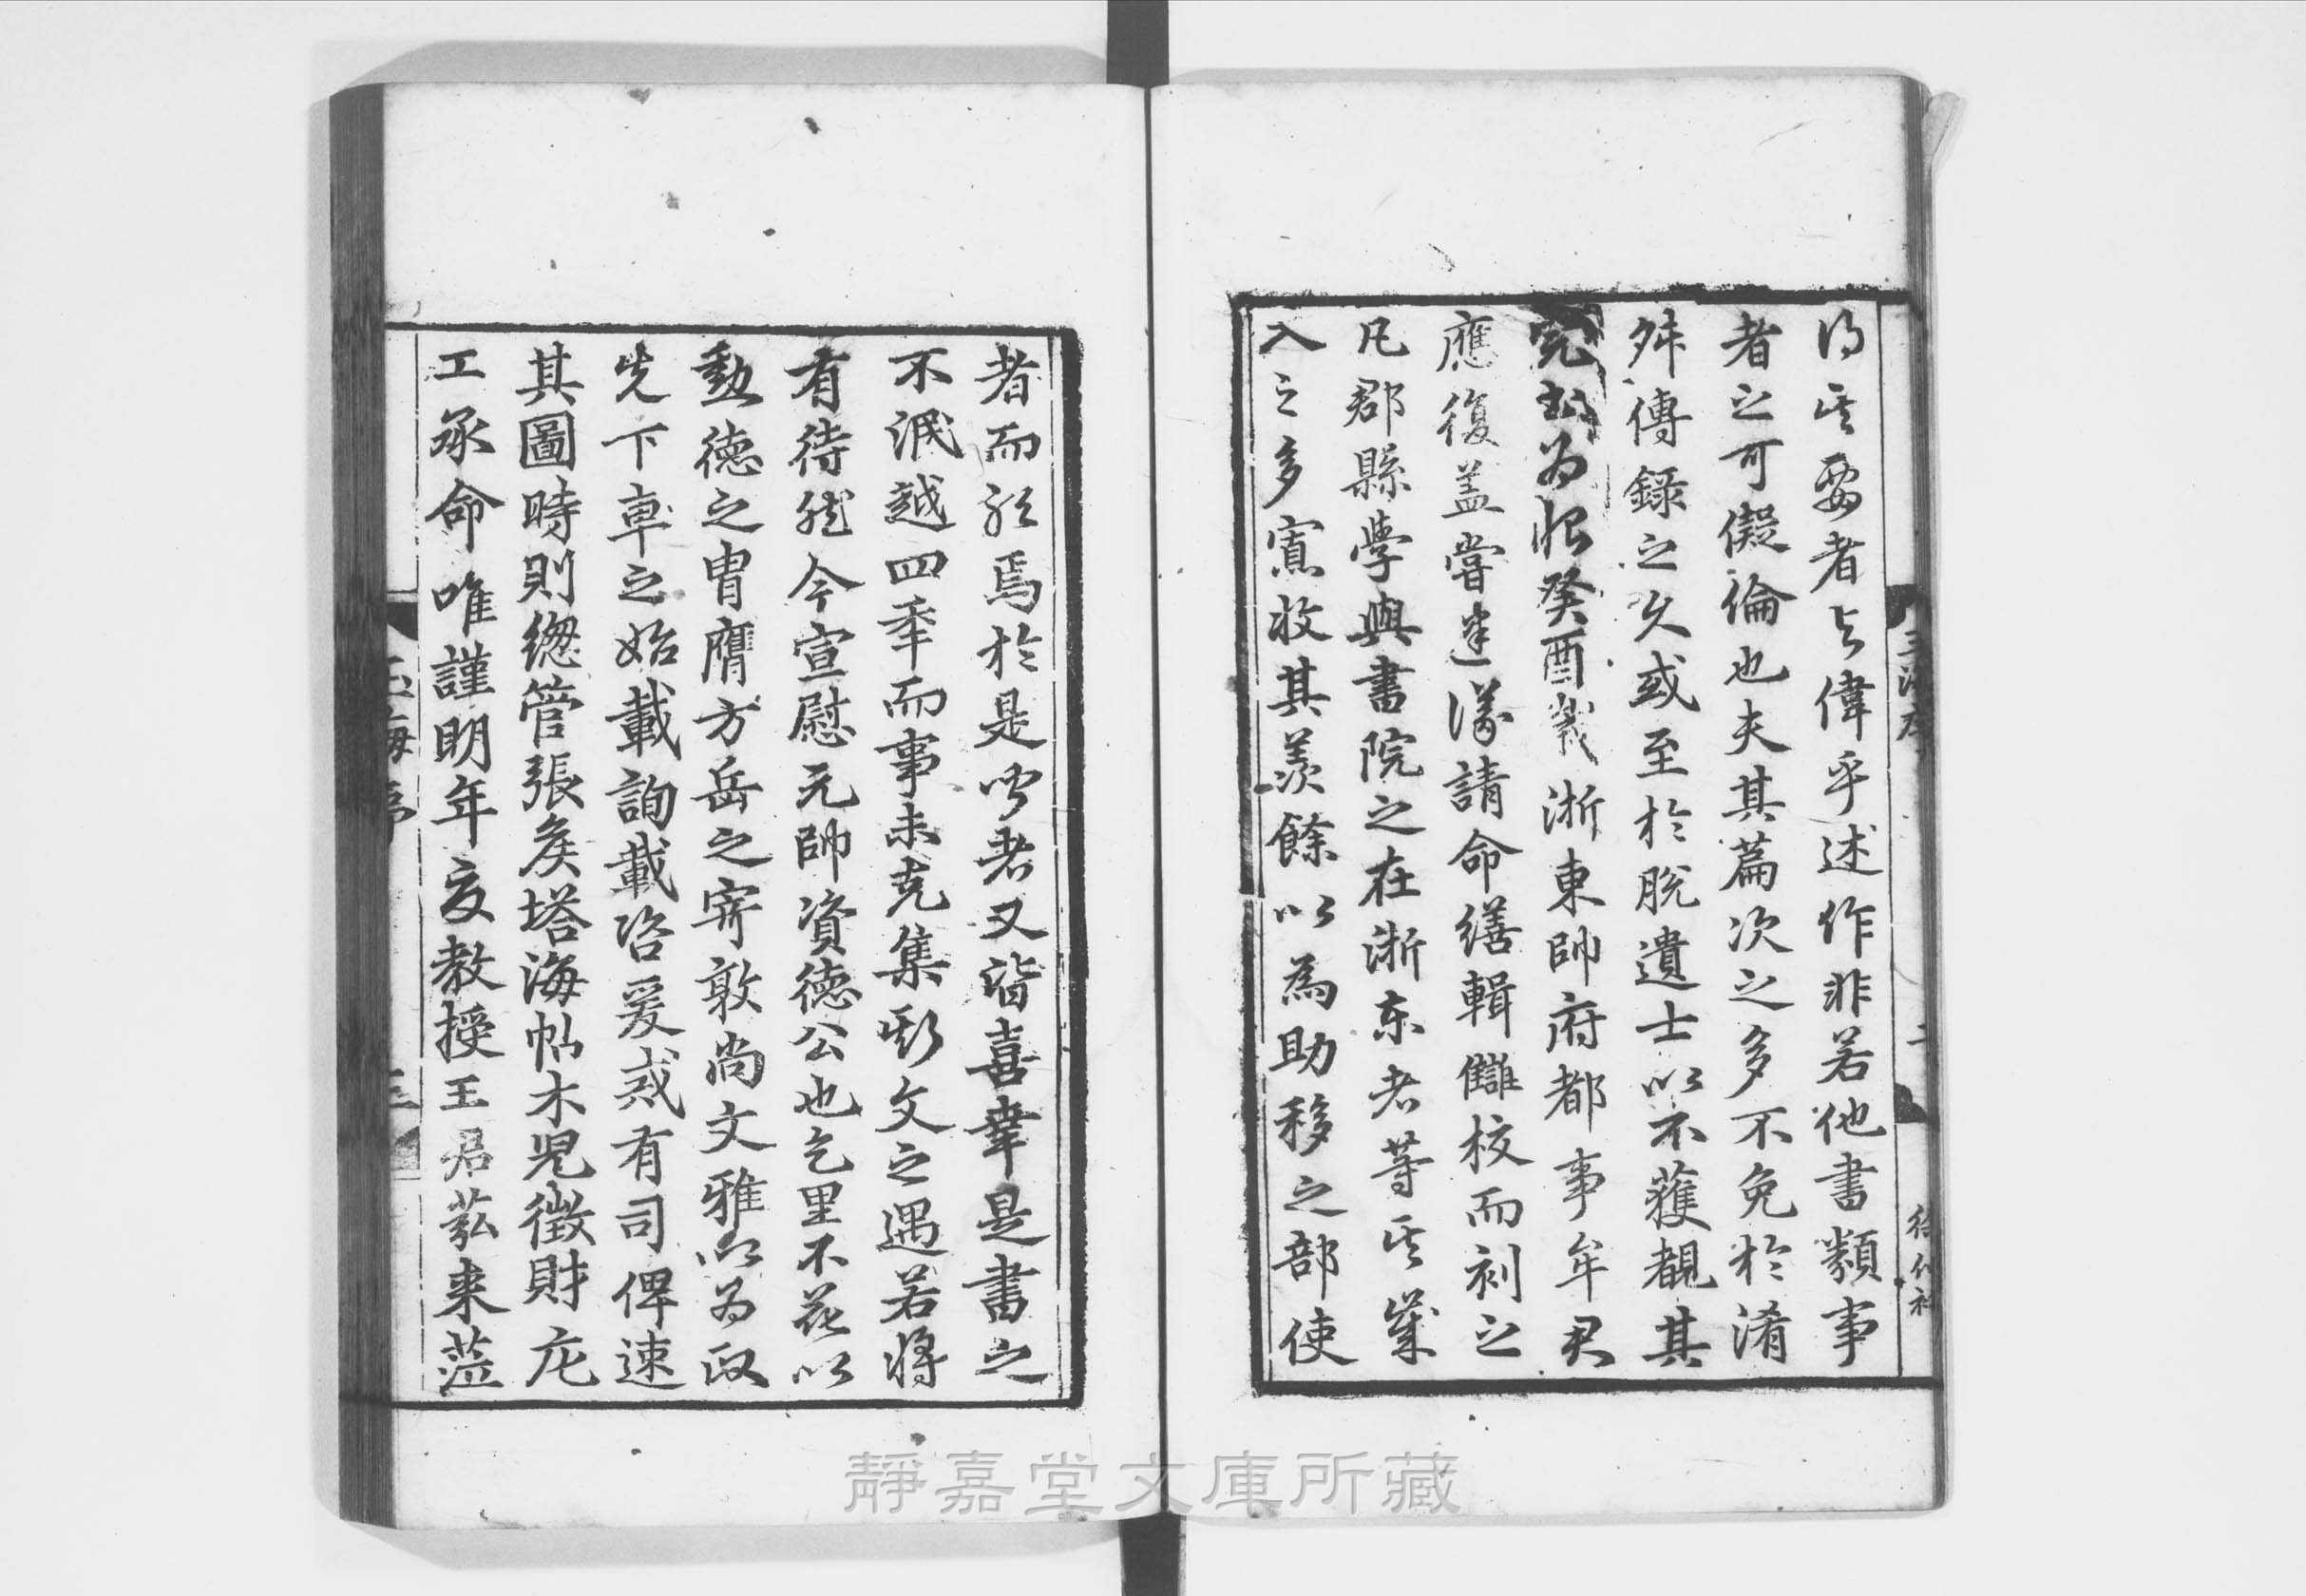 得其要者與偉乎述作非若他書類事
者之可儗倫也夫其篇次之多不免於淆
舛傳錄之久或至於脫遺士以不獲覩其
完書為恨癸酉歲浙東帥府都事牟君
應復蓋嘗建議請命繕輯讎校而刻之
凡郡縣學與書院之在浙東者等其歲
入之多寡收其羨餘以為助移之部使
者而韙焉於是聞者又皆喜幸是書之
不泯越四年而事未克集斯文之遇若將
有待然今宣慰元帥資德公也乞里不花以
勳德之胄膺方岳之寄敦尚文雅以為政
先下車之始載詢載咨爰戒有司俾速
其圖時則總管張侯塔海帖木兒徵財庀
工承命唯謹明年夏教授王君苰來蒞
玉海序 二
玉海序 三
靜嘉堂文庫所藏